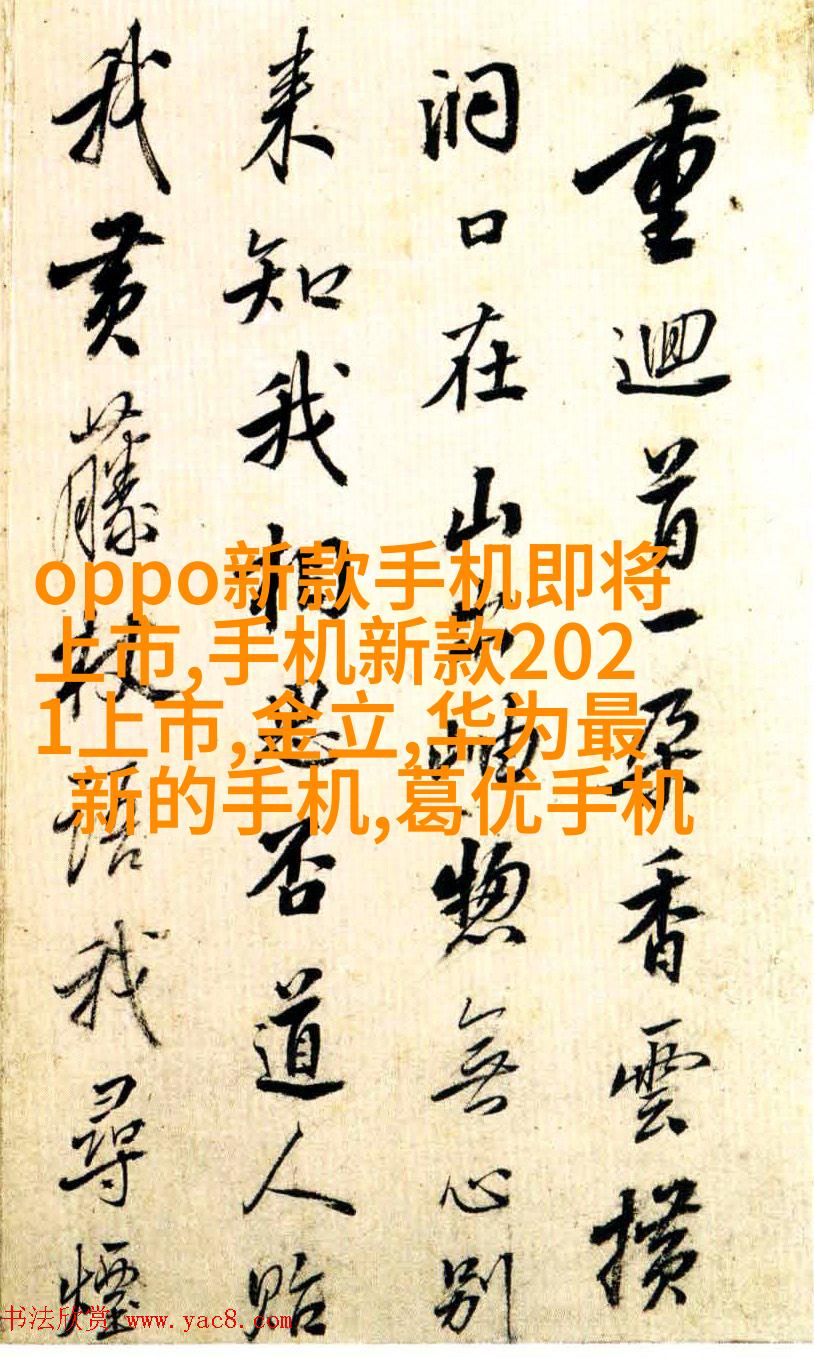 重迴首一朵香雲
洞口在山岫惣無心別
来知我相思否道人貽
我黄藤杖我尋煙
oppo新款手机即将
上市,手机新款202
1上市,金立,华为最
新的手机,葛优手机
书法欣赏 www.yac8.com